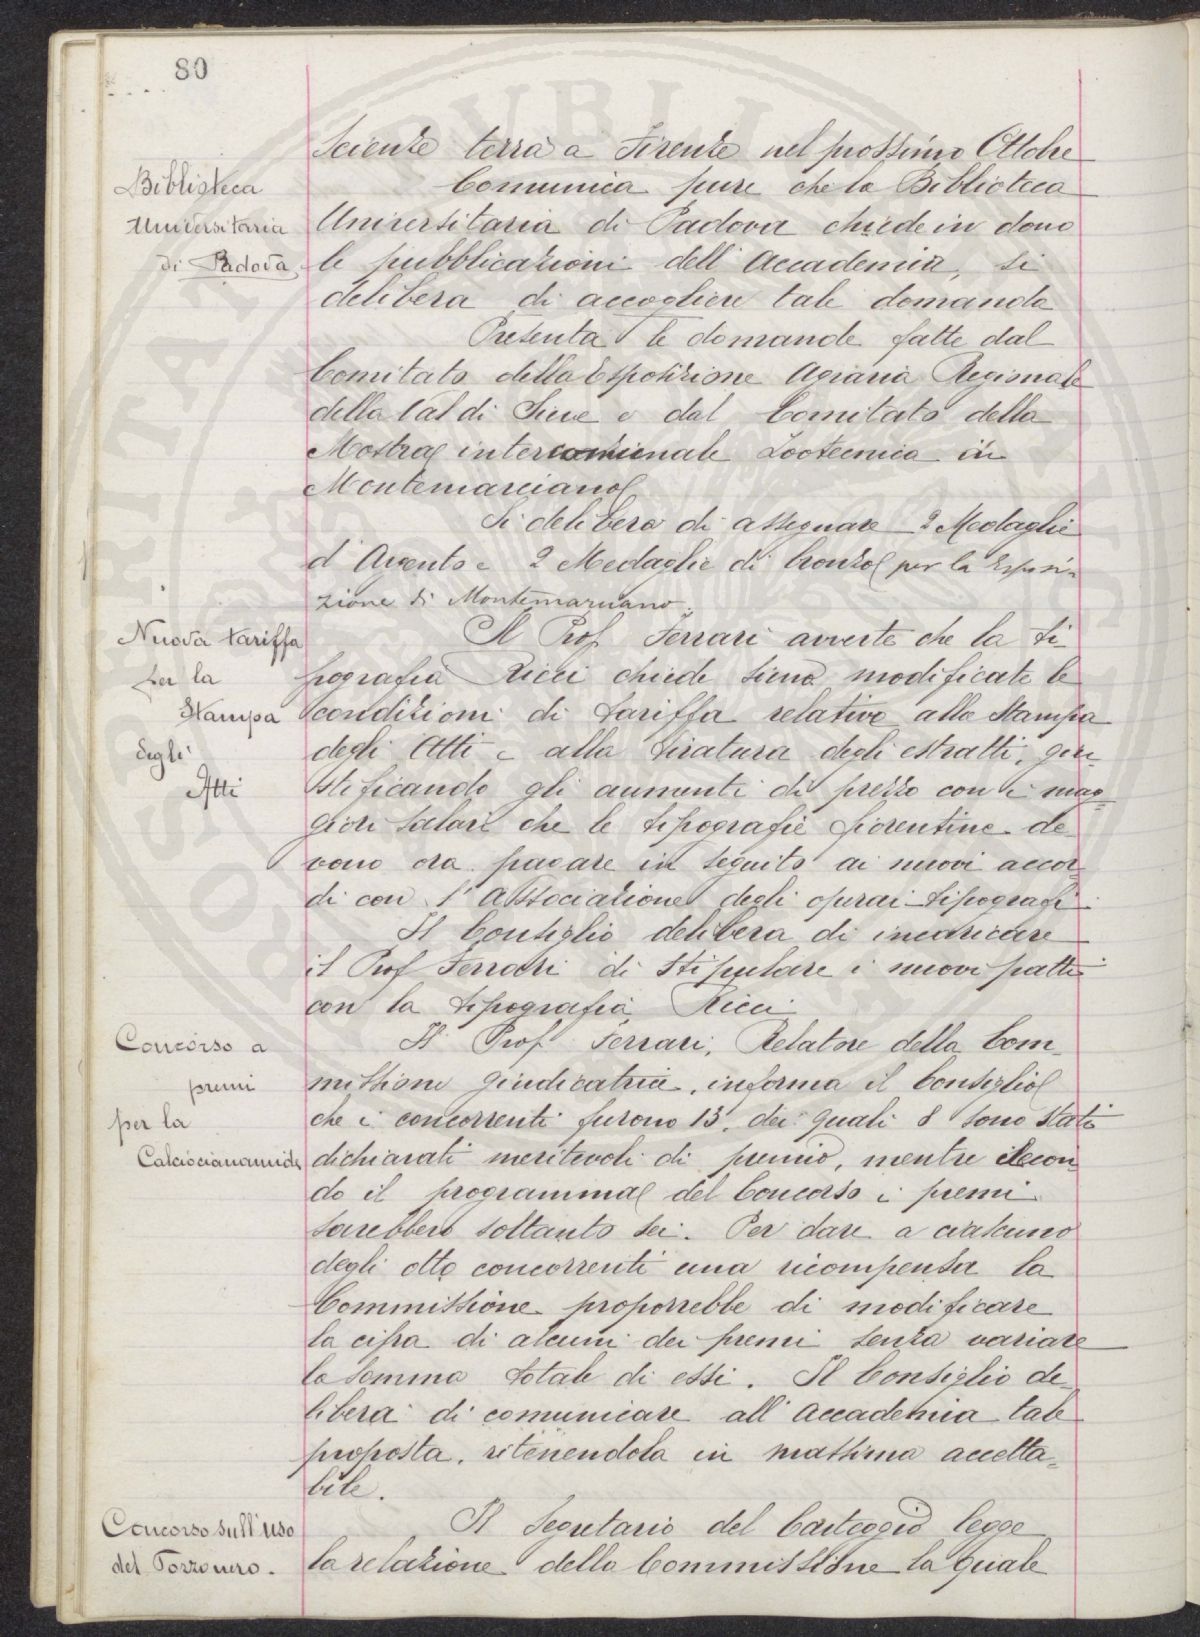 80
Scienze terrà a Firenze nel prossimo Ottobre
Comunica pure che la Biblioteca
Universitaria di Padova chiede in dono
le pubblicazioni dell'Accademia, si
delibera di accogliere tale domanda
Biblioteca
Universitaria
di Padova,
Presenta le domande fatte dal
Comitato della Esposizione Agraria Regionale
della Val di Sieve e dal Comitato della
Mostra intercomunale Zootecnica in
Montemarciano
Si delibera di assegnare 2 Medaglie
d'Argento e 2 Medaglie di bronzo per la Esposi=
zione di Montemarciano.
Nuova tariffa
per la
Stampa
degli
Atti
Il Prof. Ferrari avverte che la ti-
pografia Ricci chiede siano modificate le
condizioni di tariffa relative alla stampa
degli Atti e alla tiratura degli estratti, giu-
stificando gli aumenti di prezzo con i mag-
giori salari che le tipografie fiorentine de-
vono ora pagare in seguito ai nuovi accor-
di con l'associazione degli operai tipografi.
Il Consiglio delibera di incaricare
il Prof Ferrari di stipulare i nuovi patti
con la tipografia Ricci
Concorso a
premi
per la
Calciocianamide
Il Prof. Ferrari, Relatore della Com-
missione giudicatrice, informa il Consiglio
che i concorrenti furono 13, dei quali 8 sono stati
dichiarati meritevoli di premio, mentre secon-
do il programma del Concorso i premi
sarebbero soltanto sei. Per dare a ciascuno
degli otto concorrenti una ricompensa la
Commissione proporrebbe di modificare
la cifra di alcuni dei premi senza variare
la somma totale di essi. Il Consiglio de-
libera di comunicare all'Accademia tale
proposta, ritenendola in massima accetta=
bile.
Concorso sull'uso
del Pozzo nero.
Il Segretario del Carteggio legge
la relazione della Commissione la quale